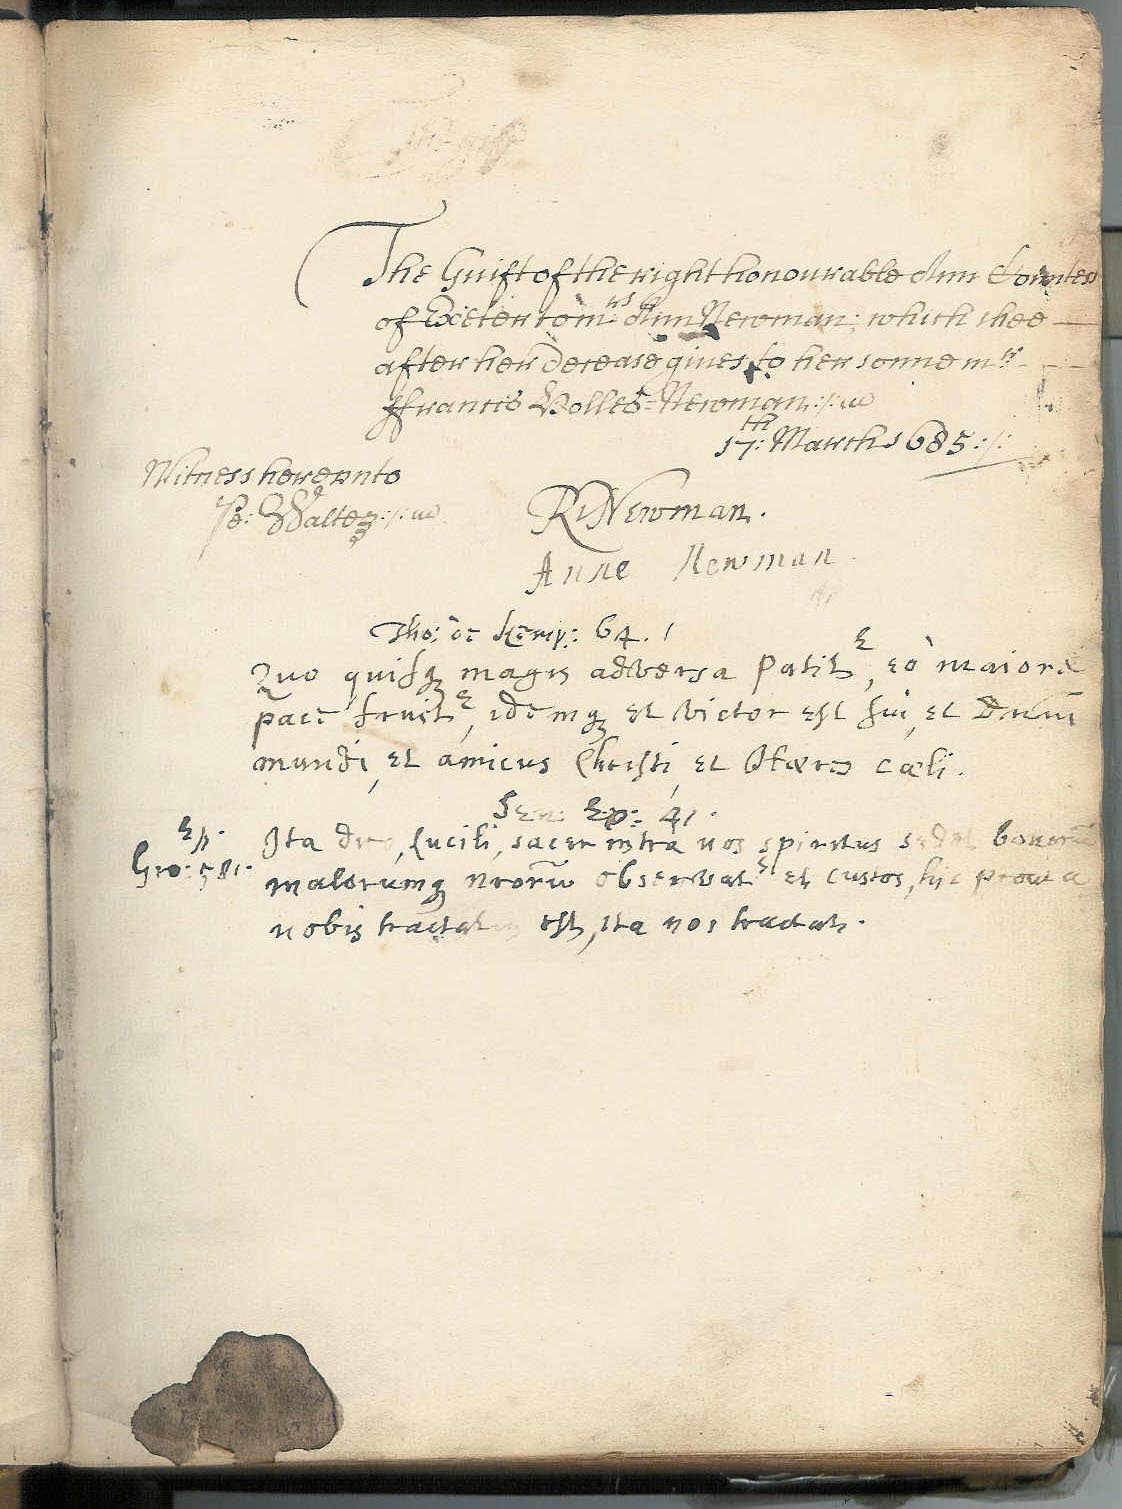 The Guift of the right honourable Ann Countess
of Exceter to mrs Ann Newman: which shee
after her decease gives to her sonne mr
ffrancis Holles = Newman:/:
17th: March 1685:/:
Witness hereunto
Walter:/:
R: Newman.
Anne Newman
Tho: de Kemp: 64. 1
Quo quisq magis adversa Patitr, eo maiore
pace fruitr, idemq et victor est sui, et Dnus
mundi, et amicus Christi, et Hæres cæli.
Sen: Ep: 41.
Ita dico, Lucili, sacer intra nos spiritus sedet bonorū
Ep.
malorumq nrorū observatr et custos, hic prout a
nobis tractatus est, ita nos tractat.